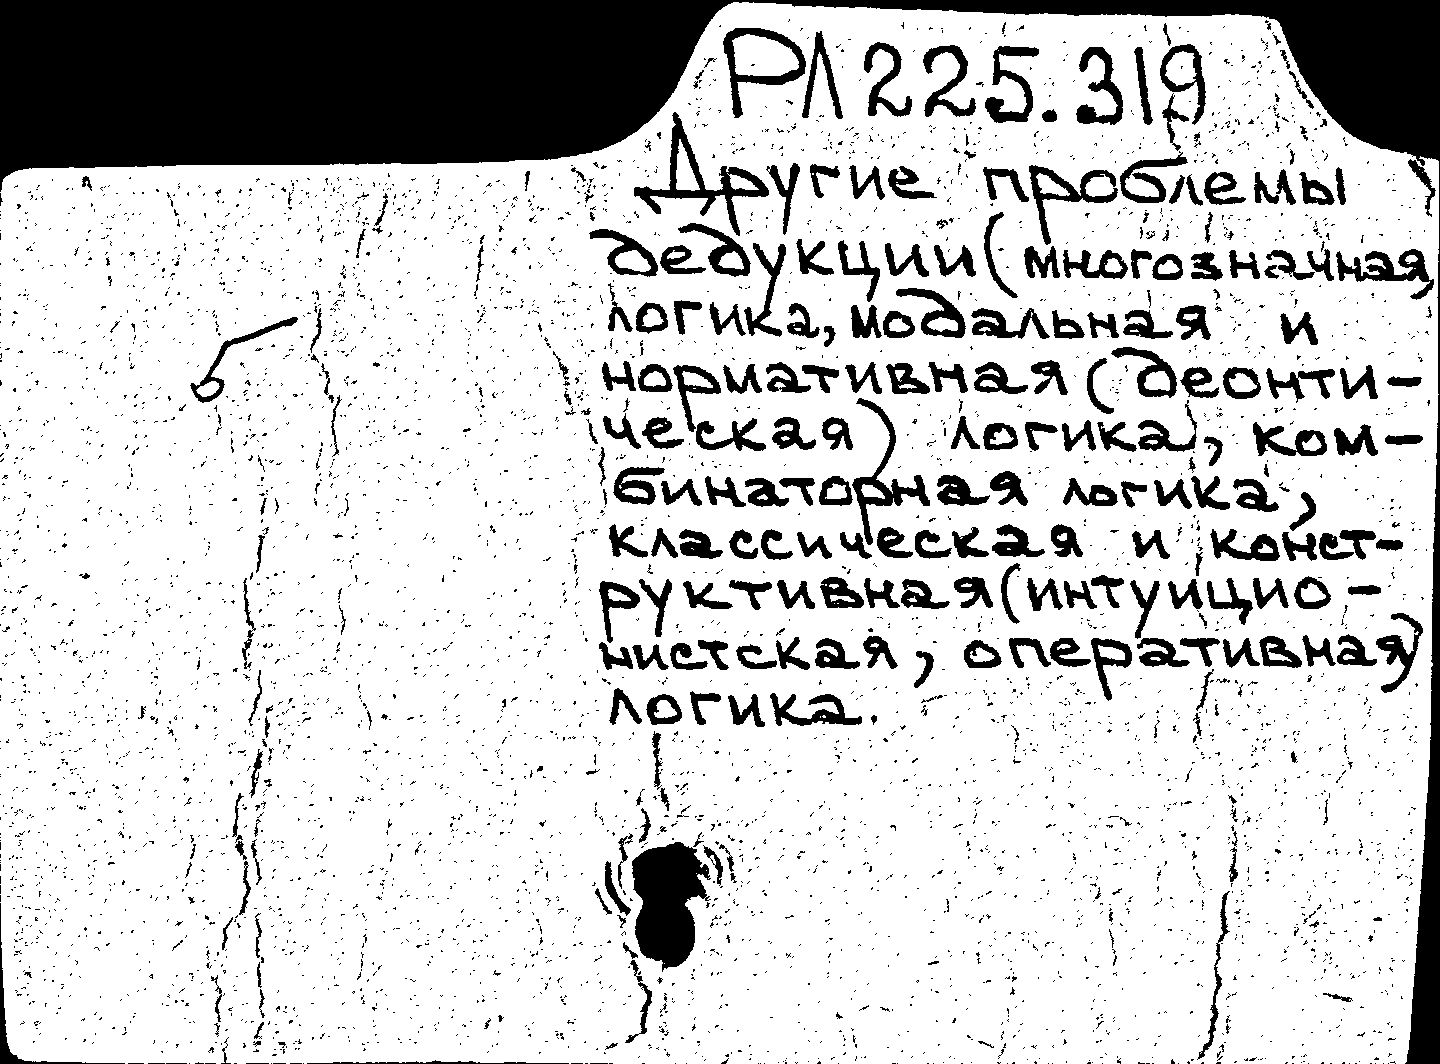 РЛ225.319
Другие проблемы
дедукции (многозначная,
логика, модальная и
нормативная (деонти-
ческая) логика, ком-
бинаторная логика,
классическая и конст-
руктивная (интуицио-
нистская, оперативная)
логика.